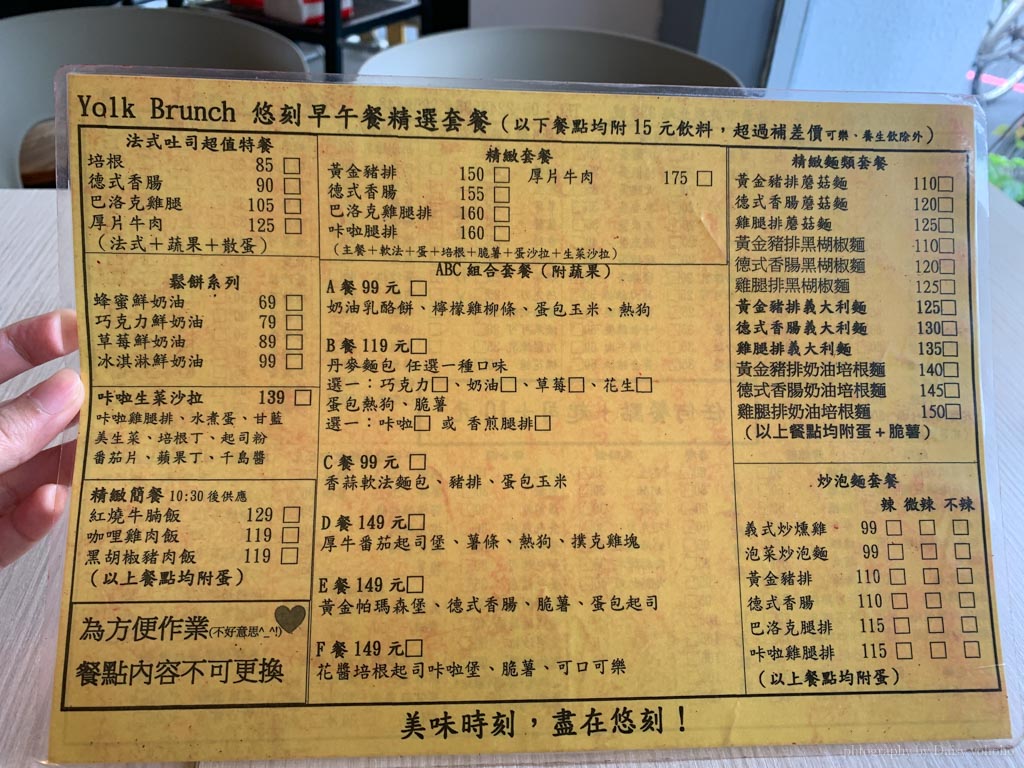 Yolk Brunch 悠刻早午餐精選套餐 (以下餐點均附 15 元飲料，超過補差價可樂、養生飲除外)
法式吐司超值特餐
培根 85 □
德式香腸 90 □
巴洛克雞腿 105 □
厚片牛肉 125 □
(法式＋蔬果＋散蛋)
鬆餅系列
蜂蜜鮮奶油 69 □
巧克力鮮奶油 79 □
草莓鮮奶油 89 □
冰淇淋鮮奶油 99 □
咔啦生菜沙拉 139 □
咔啦雞腿排、水煮蛋、甘藍
美生菜、培根丁、起司粉
番茄片、蘋果丁、千島醬
精緻簡餐 10:30 後供應
紅燒牛腩飯 129 □
咖哩雞肉飯 119 □
黑胡椒豬肉飯 119 □
(以上餐點均附蛋)
為方便作業(不好意思^_^!)
餐點內容不可更換
精緻套餐
黃金豬排 150 □ 厚片牛肉 175 □
德式香腸 155 □
巴洛克雞腿排 160 □
咔啦腿排 160 □
(主餐＋軟法＋蛋＋培根＋脆薯＋蛋沙拉＋生菜沙拉)
ABC 組合套餐 (附蔬果)
A 餐 99 元□
奶油乳酪餅、檸檬雞柳條、蛋包玉米、熱狗
B 餐 119 元□
丹麥麵包 任選一種口味
選一：巧克力□、奶油□、草莓□、花生□
蛋包熱狗、脆薯
選一：咔啦□ 或 香煎腿排□
C 餐 99 元 □
香蒜軟法麵包、豬排、蛋包玉米
D 餐 149 元□
厚牛番茄起司堡、薯條、熱狗、撲克雞塊
E 餐 149 元□
黃金帕瑪森堡、德式香腸、脆薯、蛋包起司
F 餐 149 元□
花醬培根起司咔啦堡、脆薯、可口可樂
精緻麵類套餐
黃金豬排蘑菇麵 110□
德式香腸蘑菇麵 120□
雞腿排蘑菇麵 125□
黃金豬排黑胡椒麵 110□
德式香腸黑胡椒麵 120□
雞腿排黑胡椒麵 125□
黃金豬排義大利麵 125□
德式香腸義大利麵 130□
雞腿排義大利麵 135□
黃金豬排奶油培根麵 140□
德式香腸奶油培根麵 145□
雞腿排奶油培根麵 150□
(以上餐點均附蛋＋脆薯)
炒泡麵套餐
辣 微辣 不辣
義式炒燻雞 99 □ □ □
泡菜炒泡麵 99 □ □ □
黃金豬排 110 □ □ □
德式香腸 110 □ □ □
巴洛克腿排 115 □ □ □
咔啦雞腿排 115 □ □ □
(以上餐點均附蛋)
美味時刻，盡在悠刻！
photography by Daisy